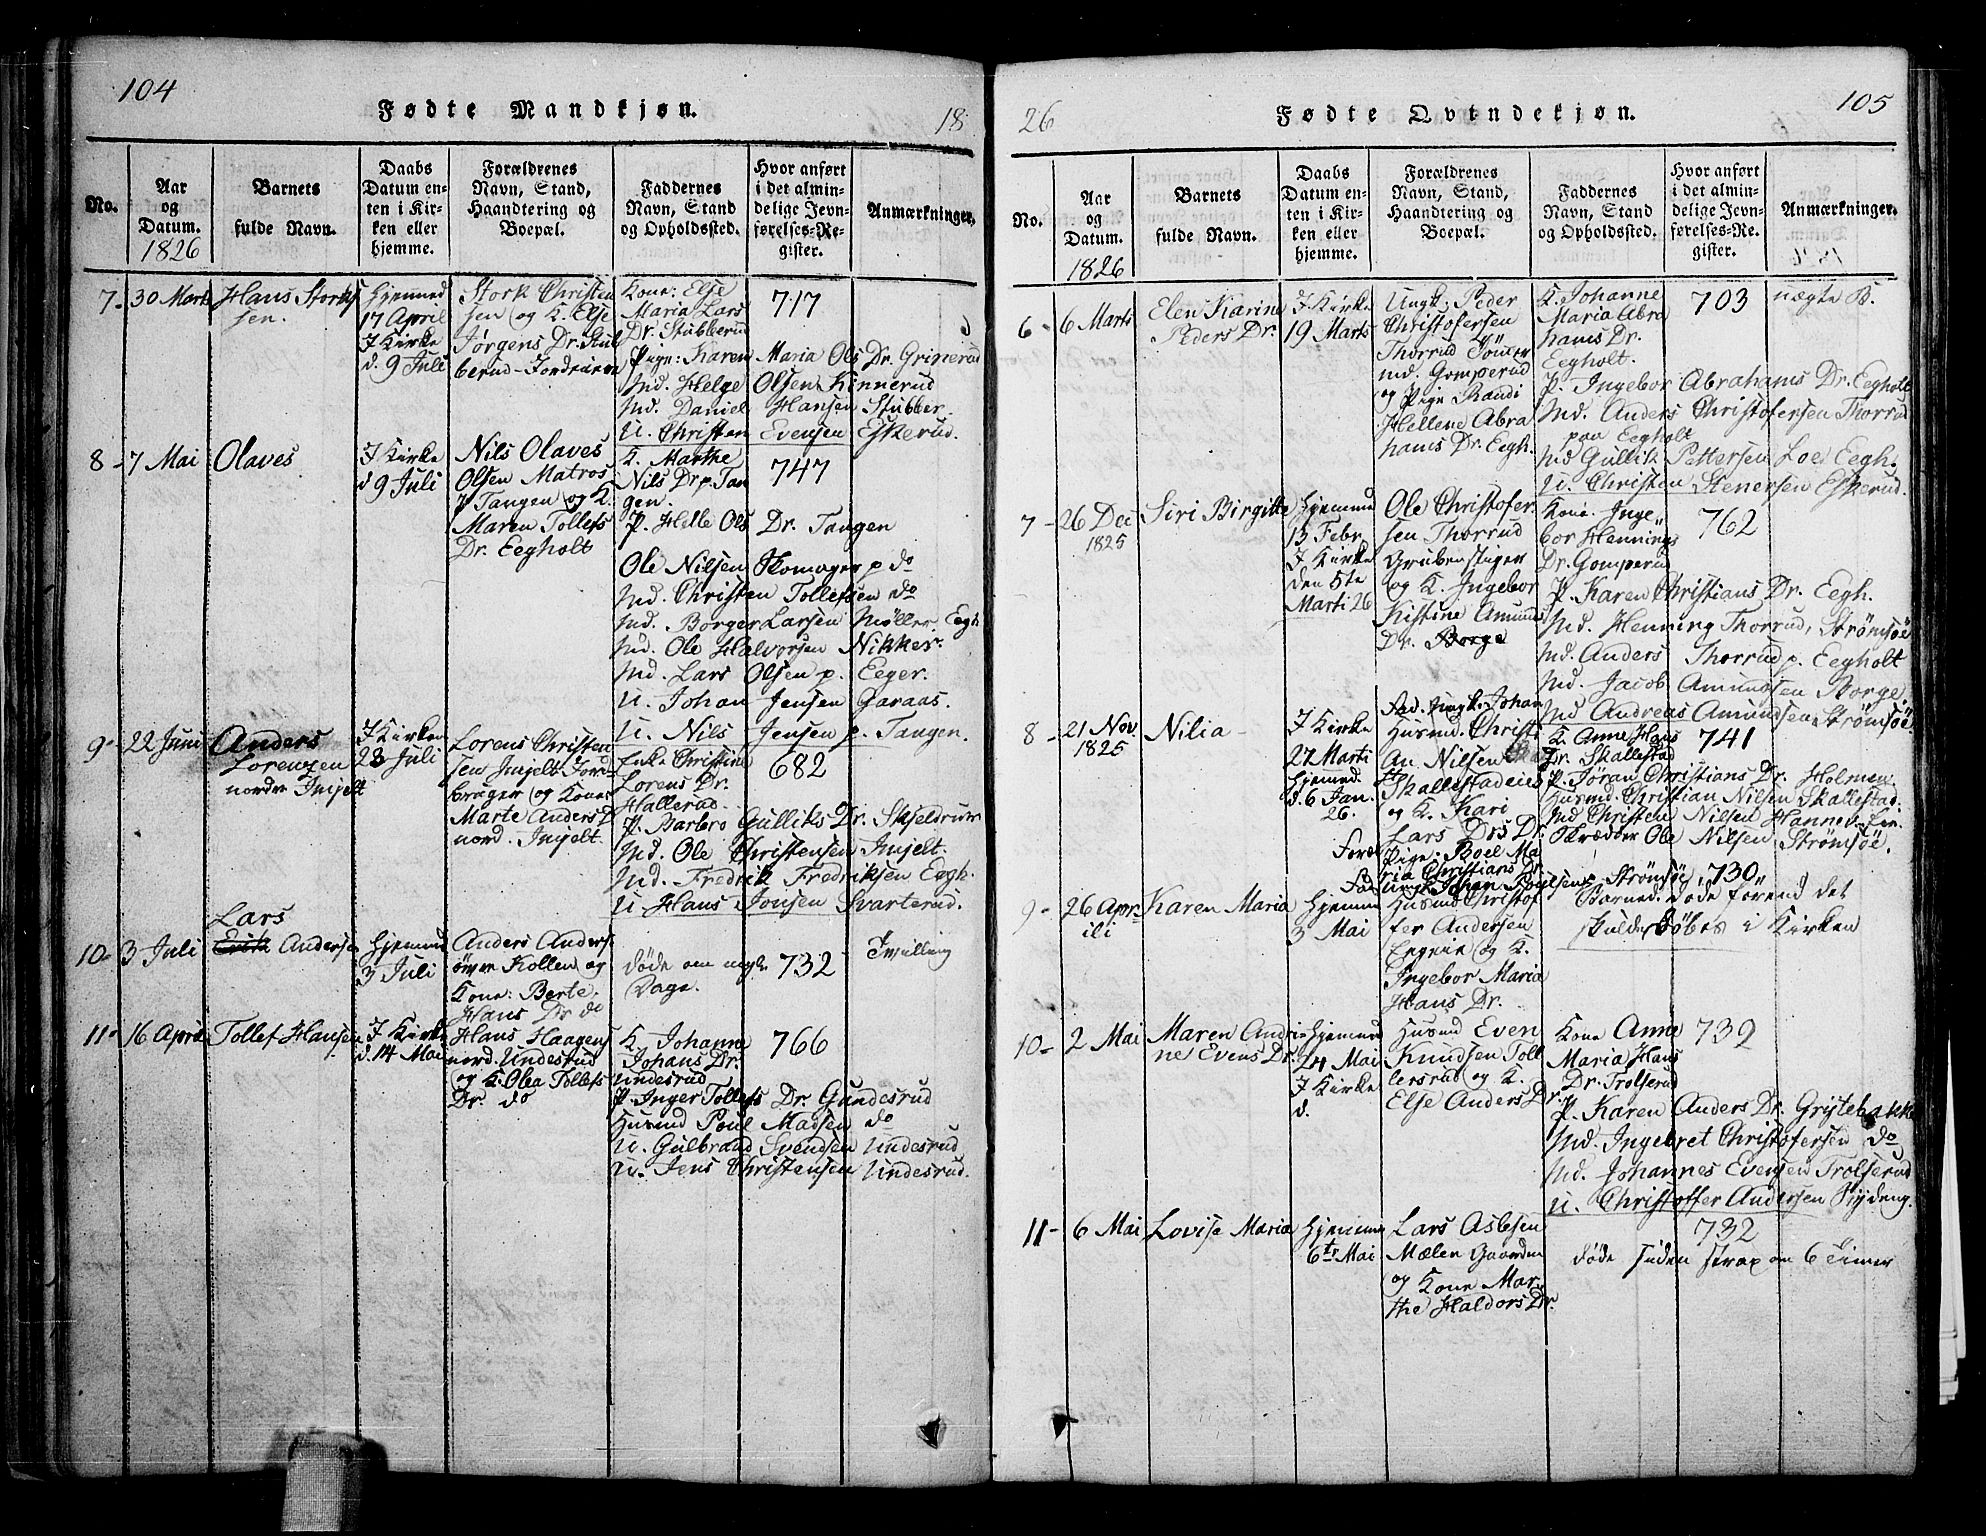 104
Fødte Mandkjøn.
18
No.
Aar
og
Datum.
1826
Barnets
fulde Navn.
Daabs
Datum en-
ten i Kir-
ken eller
hjemme.
Forældrenes
Navn, Stand,
Haandtering og
Boepæl.
Faddernes
Navn, Stand
og Opholdssted.
Hvor anført
i det almin-
delige Jevn-
førelses-Re-
gister.
Anmærkninger.
7-
30 Marts
Hans Stork
sen.
Hjemmed
17 April
I Kirke
d. 9 Juli
Stork Christen
sen og K. Else
Jørgens Dr. Stub
berud -
Kone: Else
Maria Lars
Dr. Stubberud
Pige: Karen Maria Ols Dr. Grinerud
Md. Helge Olsen Kinnerud
Md. Daniel Hansen Stubber.
U. Christen Evensen Eskerud.
717
8-
7 Mai
Olaves
I Kirke
d 9 Juli
Nils Olaves
Olsen Matros
I Tangen og K.
Maren Tollefs
Dr. Eegholt
K. Marthe
Nils Dr p. Tan
gen.
P. Helle Ols Dr. Tangen
Ole Nilsen Skomager p do
Md. Christen Tollefsen do
Md. Borger Larsen Møller. Eegh
Md. Ole Halvorsen Nikker.
Md. Lars Olsen p. Eeger.
U. Johan Jensen Garaas.
U. Nils Jensen p. Tangen.
747
9-
22 Juni
Anders
Lorenzen
nordre Imjelt
I Kirken
28 Juli
Lorens Christen
sen Imjelt Jord
bruger og Kone
Marte Anders D
nord. Imjelt.
Enke Christine
Lorens Dr.
Hallerud.
P. Barbro Gulliks Dr. Skjeldrum
Md. Ole Christensen Imjelt.
Md. Fredrik Fredriksen Eegh.
U Hans Jonsen Svarterud.
682
10-
3 Juli
Lars
Erik Andersen
Hjemmed
3 Juli
Anders Anders.
øvre Kollen og
Kone: Berte
Hans Dr do
døde om nogle
Dage.
732
Tvilling
11-
16 April
Tollef Hansen
I Kirke
d. 14 Mai
Hans Haagens
nord. Undesrud
og K. Olea Tollefs
Dr. do
K. Johanne
Johans Dr.
Undesrud
P. Inger Tollefs Dr. Gundesrud
Husmd Poul Madsen do
U. Gulbrand Svendsen Undesrud
U. Jens Christensen Undesrud.
766
26
Fødte Qvindekjøn.
105
No.
Aar
og
Datum.
1826
Barnets
fulde Navn.
Daabs
Datum en-
ten i Kir-
ken eller
hjemme.
Forældrenes
Navn, Stand,
Haandtering og
Boepæl.
Faddernes
Navn, Stand
og Opholdssted.
Hvor anført
i det almin-
delige Jevn-
førelses-Re-
gister.
Anmærkninger.
6-
6 Marts
Elen Karine
Peders Dr.
I Kirke
19 Marts
Ungk: Peder
Christofersen
Thorrud
md. Gomperud
og Pige Randi
Hellene Abra
hams Dr. Eegh.
K. Johanne
Maria Abra
hams Dr.
Eegholt.
P. Ingebor Abrahams Dr. Eegholt
Md. Anders Christofersen Thorrud
paa Eegholt
Md Gullik Pettersen Loe Eegh.
U. Christen Stenersen Eskerud.
703
uægte B.
7-
26 Dec
1825
Siri Birgitte
Hjemmed
13 Febr.
I Kirke
den 5te
Marti 26
Ole Christofer
sen Thorrud
Grubenstiger
og K. Ingebor
Kistine Amunds
Dr. Borge
Kone. Inge
bor Hennings
Dr. Gomperud
P. Karen Christians Dr. Eegh.
Md. Henning Thorrud, Strømsøe
Md. Anders Thorrud p. Eegholt
Md. Jacob Amundsen Borge,
Md Andreas Amundsen Strømsøe
762
8-
21 Nov
1825
Nilia-
I Kirke
27 Marti
Hjemmed.
d. 6 Jan.
26.
Fad. Ungk. Johan
Husmd. Christi
An. Nilsen
Skallestadeie
og K. Kari
Lars Drs Dr.
Pige: Boel Ma
ria Christians Dr
K. Anne Hans
Dr. Skallestad
P. Jøran Christians Dr. Holmen
Husmd. Christian Nilsen Skallestad.
Md Christen Nilsen
Skræder Ole Nilsen Strømsøe.
Strømsøe,
741
9-
26 Apr
ili
Karen Maria
Hjemme
3 Mai
Husmd Christof
fer Andersen
og K.
Ingebor Maria
Hans Dr.
730
Barnet døde førend det
skulde Døbes i Kirken
10-
2 Mai
Maren Andri
ne Evens Dr.
Hjemme
24 Mai
I Kirke
d.
Husmd Even
Knudsen Toll
lersrud og K.
Else Anders Dr.
Kone Anne
Maria Hans
Dr. Trolserud
P. Karen Anders Dr. Grytebakke
Md. Ingebret Christofersen do
Md. Johannes Evensen Trolserud
U. Christoffer Andersen Rydeng.
739
11-
6 Mai
Lovise Maria
Hjemme
6te Mai
Lars Aslesen
Mælen Gaarden
og Kone Mar
the Haldors Dr.
732
døde siden strax om 6 Timer